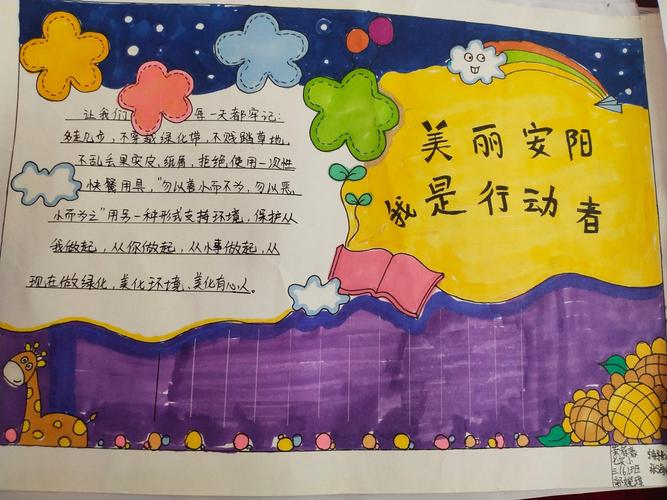 美丽安阳
我是行动者
让我们 每一天都牢记：
多走几步，不穿越绿化带，不践踏草地，
不乱丢果实皮、纸屑，拒绝使用一次性
快餐用具，"勿以善小而不为，勿以恶
小而为之"用另一种形式支持环境，保护从
我做起，从你做起，从小事做起，从
现在做绿化，美化环境、美化有心人。
三（6）班